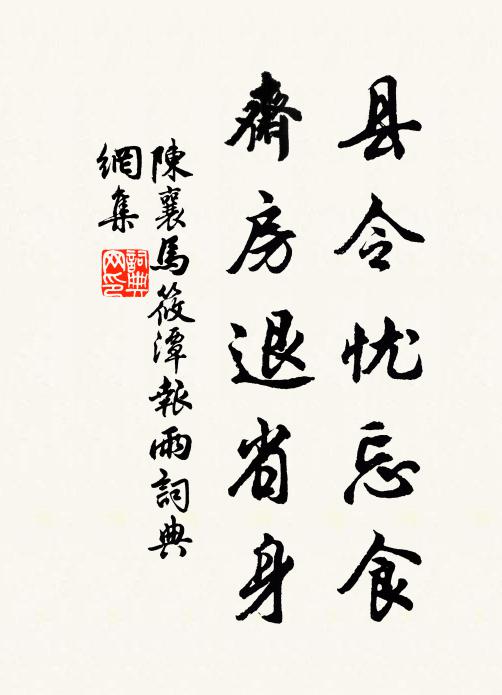 县令忧忘食
齋房退省身
陳襄馬筱潭報雨詞典
網集
詞典
网印